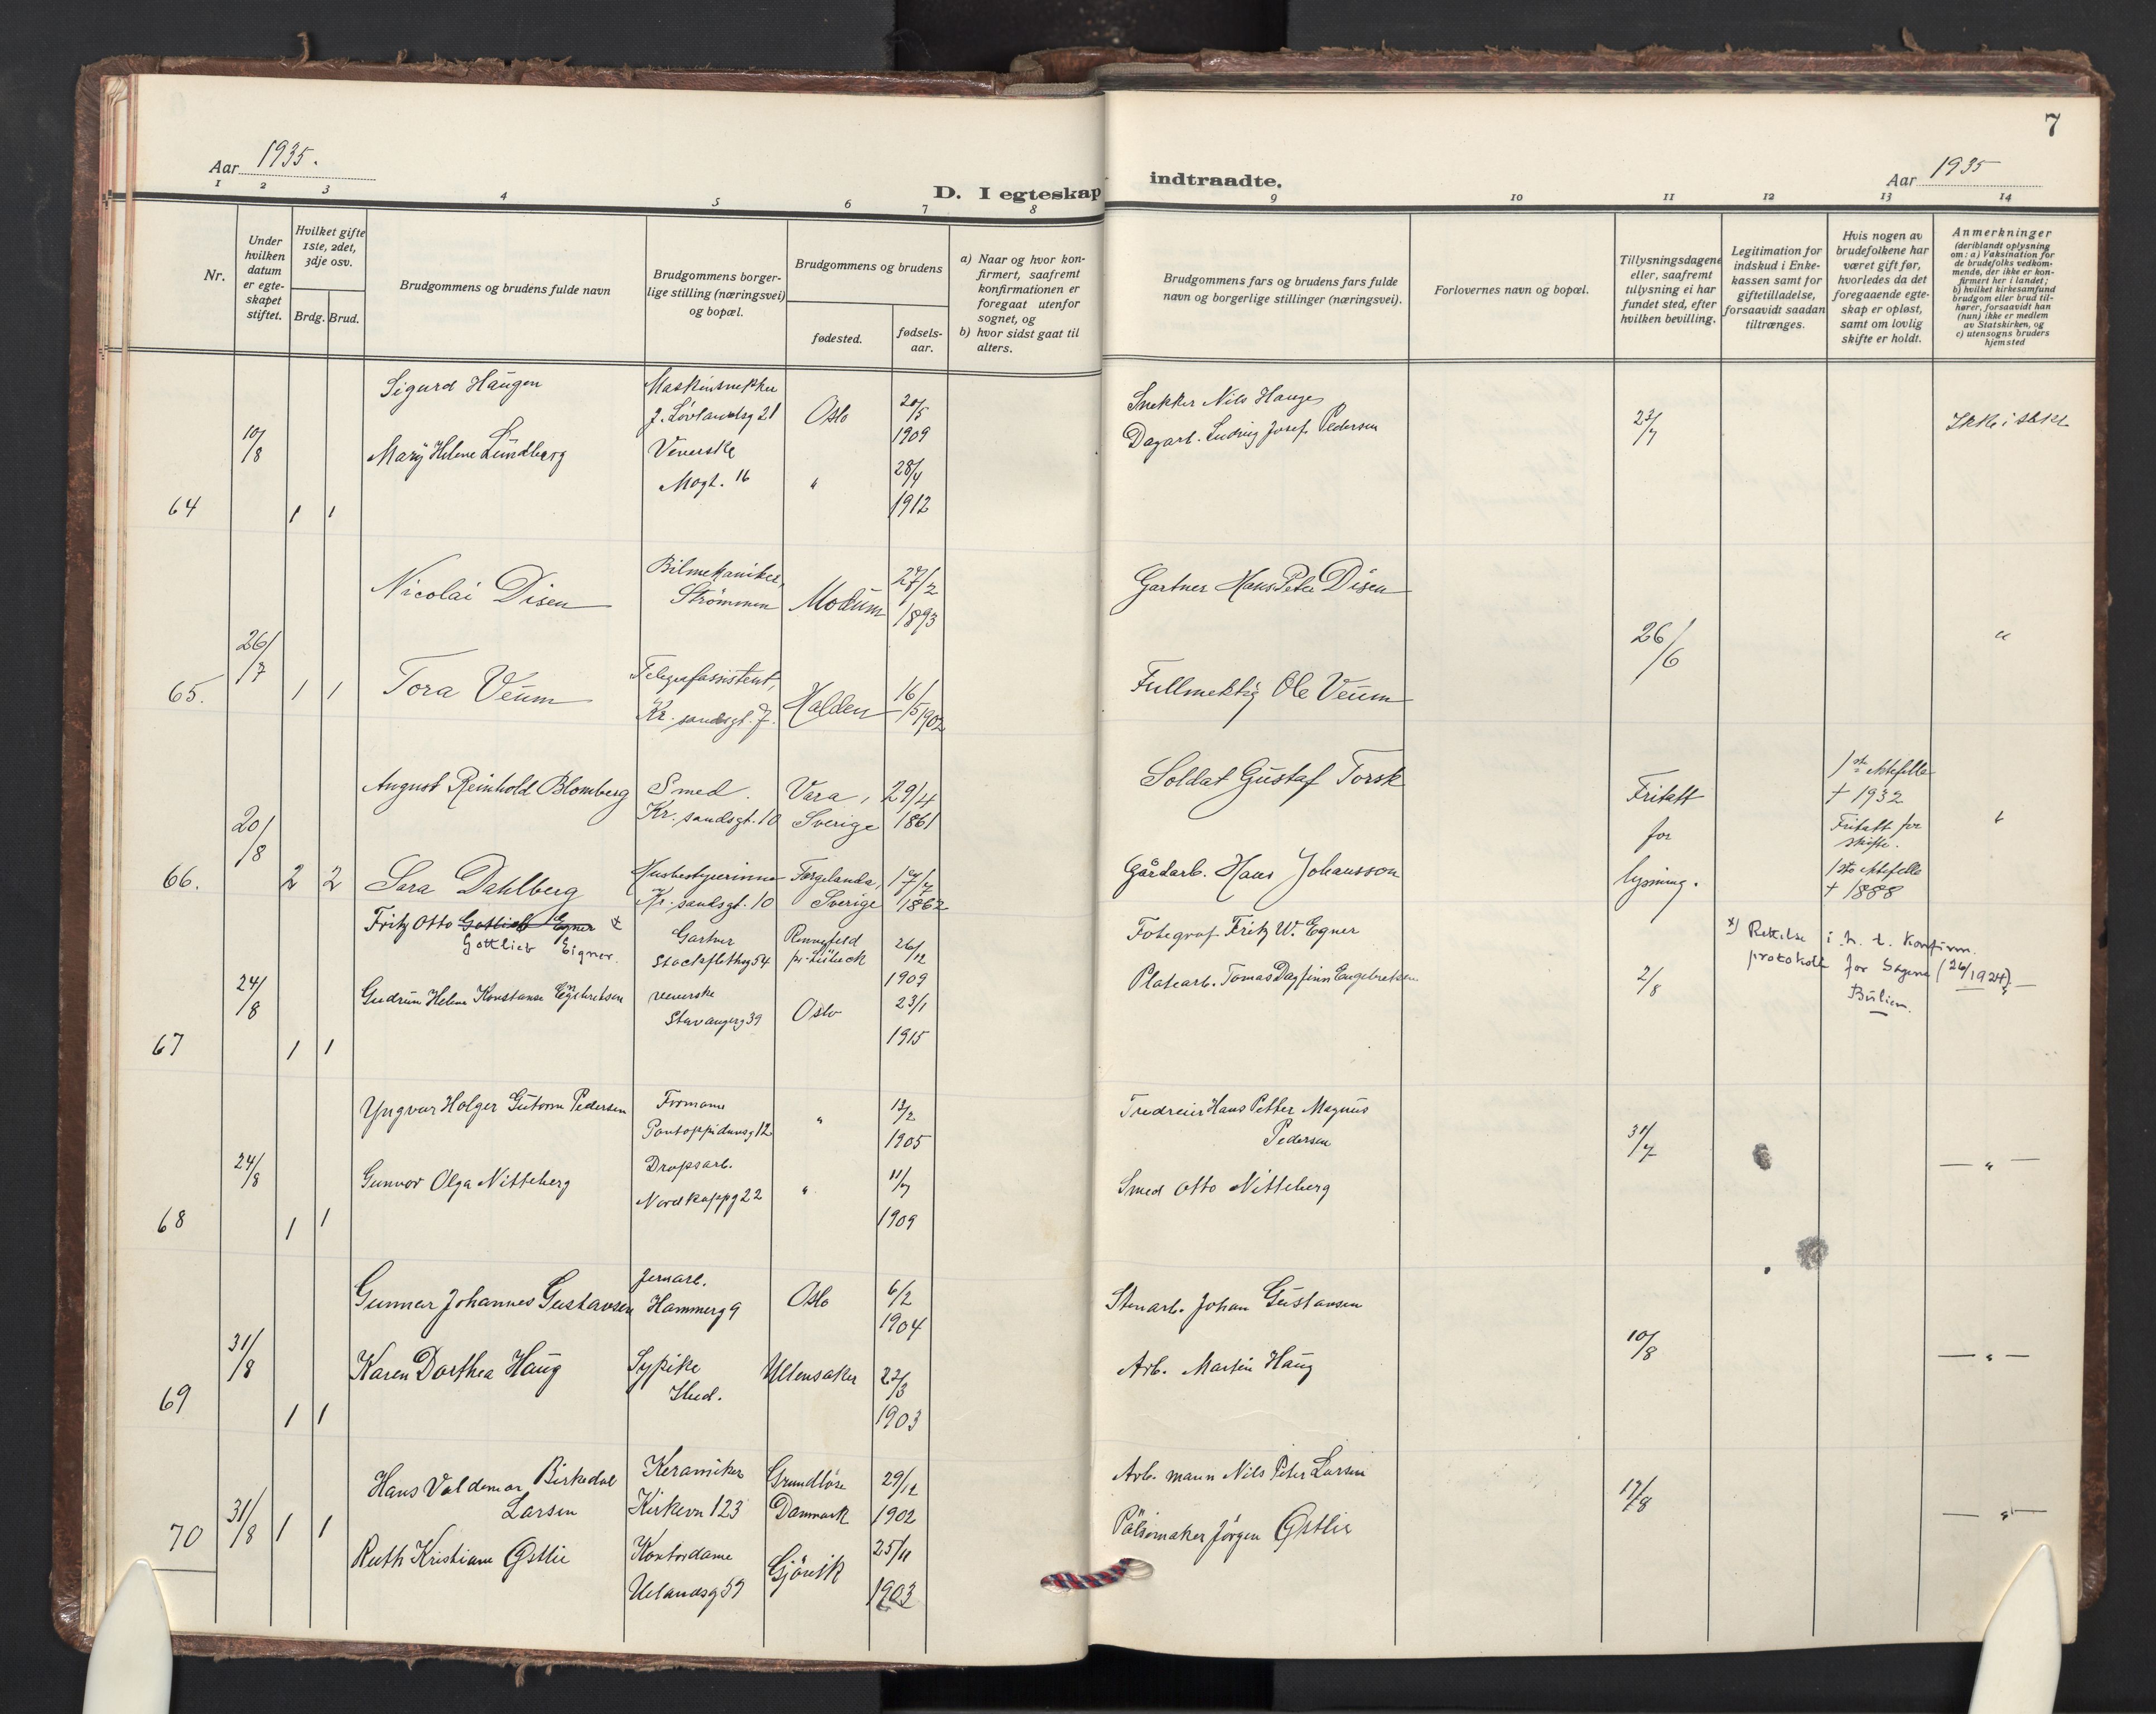 7
Aar 1935.
Aar 1935
D. I egteskap indtraadte.
1 2 3 4 5 6 7 8 9 10 11 12 13 14
Nr.
Under hvilken datum er egte-skapet stiftet.
Hvilket gifte 1ste, 2det, 3dje osv.
Brdg. Brud.
Brudgommens og brudens fulde navn
Brudgommens borger-
lige stilling (næringsvei)
og bopæl.
Brudgommens og brudens
fødested.
fødsels-
aar.
a) Naar og hvor kon-
firmert, saafremt
konfirmationen er
foregaat utenfor
sognet, og
b) hvor sidst gaat til
alters.
Brudgommens fars og brudens fars fulde
navn og borgerlige stillinger (næringsvei).
Forlovernes navn og bopæl.
Tillysningsdagene
eller, saafremt
tillysning ei har
fundet sted, efter
hvilken bevilling.
Legitimation for
indskud i Enke-
kassen samt for
giftetilladelse,
forsaavidt saadan
tiltrænges.
Hvis nogen av
brudefolkene har
været gift før,
hvorledes da det
foregaaende egte-
skap er opløst,
samt om lovlig
skifte er holdt.
Anmerkninger
(deriblandt oplysning
om: a) Vaksination for
de brudefolks vedkom-
mende, der ikke er kon-
firmert her i landet;
b) hvilket kirkesamfund
brudgom eller brud til-
hører, forsaavidt han
(hun) ikke er medlem
av Statskirken, og
c) utensogns bruders
hjemsted
64
10/8
1 1
Sigurd Haugen
Maskinsnekker
J. Løvlandsg 21
Oslo
20/5
1909
Snekker Nils Haugen
23/7
Mary Helene Lundberg
Veverske
Mogt. 16
"
28/4
1912
Dagarb. Ludvig Josef Pedersen
65.
26/7
1 1
Nicolai Disen
Bilmekaniker,
Strømmen
Modum
27/2
1893
Gartner Hans Peter Disen
26/6
"
Tora Veum
Telegrafassistent,
Kr.sandsgt. 7.
Halden
16/5 1902
Fullmektig Ole Veum
66.
20/8
2 2
August Reinhold Blomberg
Smed.
Kr.sandsgt. 10
Vara,
Sverige
29/4
1861
Soldat Gustaf Torsk
Fritatt
for
lysning.
1ste ektefelle
† 1932
Fritatt for
skifte.
Sara Dahlberg
Husbestyrerinne
Kr.sandsgt. 10
Færgelanda,
Sverige
17/7
1862
Gårdarb. Hans Johansson
1ste ektefelle
† 1888
67
24/8
1 1
Fritz Otto Gottlieb Egner x
Gottlieb Eigner.
Gartner
Stockflethg 54
pr. Lübeck
26/12
1909
Fotograf Fritz W. Egner
2/8
x) Rettelse i h. t. Konfirm.
protokoll for Sagene (26/1924).
Gudrun Helene Konstanse Engebretsen
veverske
Stavangerg 39
Oslo
23/1
1915
Platearb. Tomas Dagfinn Engebretsen
68
24/8
1 1
Yngvar Holger Gutorm Pedersen
Pontoppidansg 12
"
13/2
1905
Tredreier Hans Petter Magnus
Pedersen
31/7
— " —
Gunvor Olga Nitteberg
Dropsarb.
Nordkappg 22
"
11/7
1909
Smed Otto Nitteberg
69
31/8
1 1
Gunnar Johannes Gustavsen
Jernarb.
Hammerg 9
Oslo
6/2
1904
Stenarb. Johan Gustavsen
10/8
— " —
Karen Dorthea Haug
Sypike
Sted.
Ullensaker
22/3
1903
Arb. Martin Haug
70
31/8
1 1
Hans Valdemar Birkedal
Larsen
Keramiker
Kirkevn 123
Grundløse
Danmark
29/12
1902
Arb. mann Nils Peter Larsen
17/8
— " —
Ruth Kristiane Østlie
Kontordame
Uelandsg 59
Gjövik
25/11
1903
Pølsemaker Jörgen Østlie